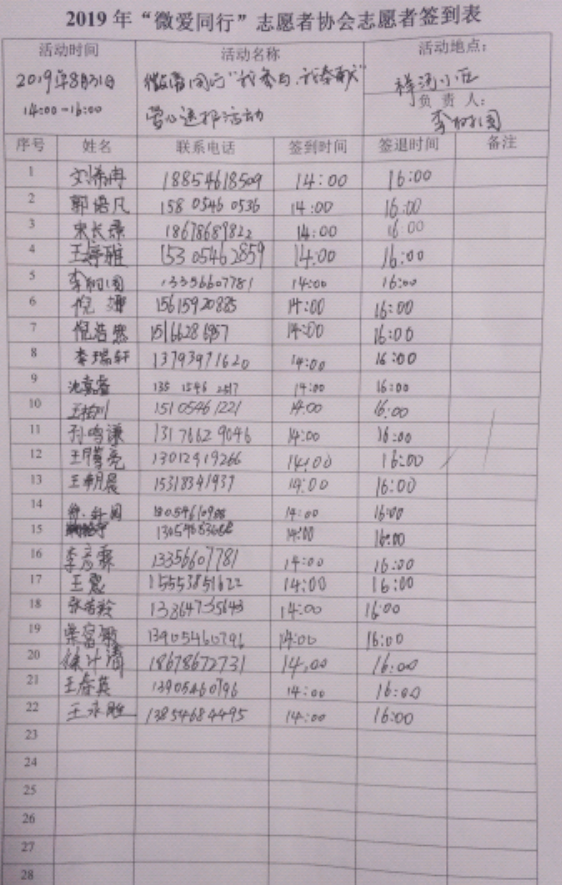 2019年“微爱同行”志愿者协会志愿者签到表
活动时间 活动名称 活动地点：
2019年8月31日 微爱同行“我参与、我奉献” 祥河小区
14:00-16:00 爱心送报活动 负责人：
李树国
序号 姓名 联系电话 签到时间 签退时间 备注
1 刘希冉 18854618509 14:00 16:00
2 郭语凡 158 0546 0536 14:00 16:00
3 宋长 18678689822 14:00 16:00
4 王婷雅 153 0546 2859 14:00 16:00
5 李树国 13356607781 14:00 16:00
6 倪娜 15615920885 14:00 16:00
7 倪浩 14:00 16:00
8 李瑞轩 13793971620 14:00 16:00
9 沈嘉睿 135 1546 2517 14:00 16:00
10 王柏川 15105461221 14:00 16:00
11 孙鸣谦 131 7662 9046 14:00 16:00
12 王腾亮 13012919266 14:00 16:00
13 王朝晨 15318341937 14:00 16:00
14 14:00 16:00
15 14:00 16:00
16 李彦霖 13356607781 14:00 16:00
17 王震 15553851622 14:00 16:00
18 张若龄 13364735643 14:00 16:00
19 13905460796 14:00 16:00
20 徐汁清 18678672731 14:00 16:00
21 王春英 13905460796 14:00 16:00
22 王永胜 13854684495 14:00 16:00
23
24
25
26
27
28